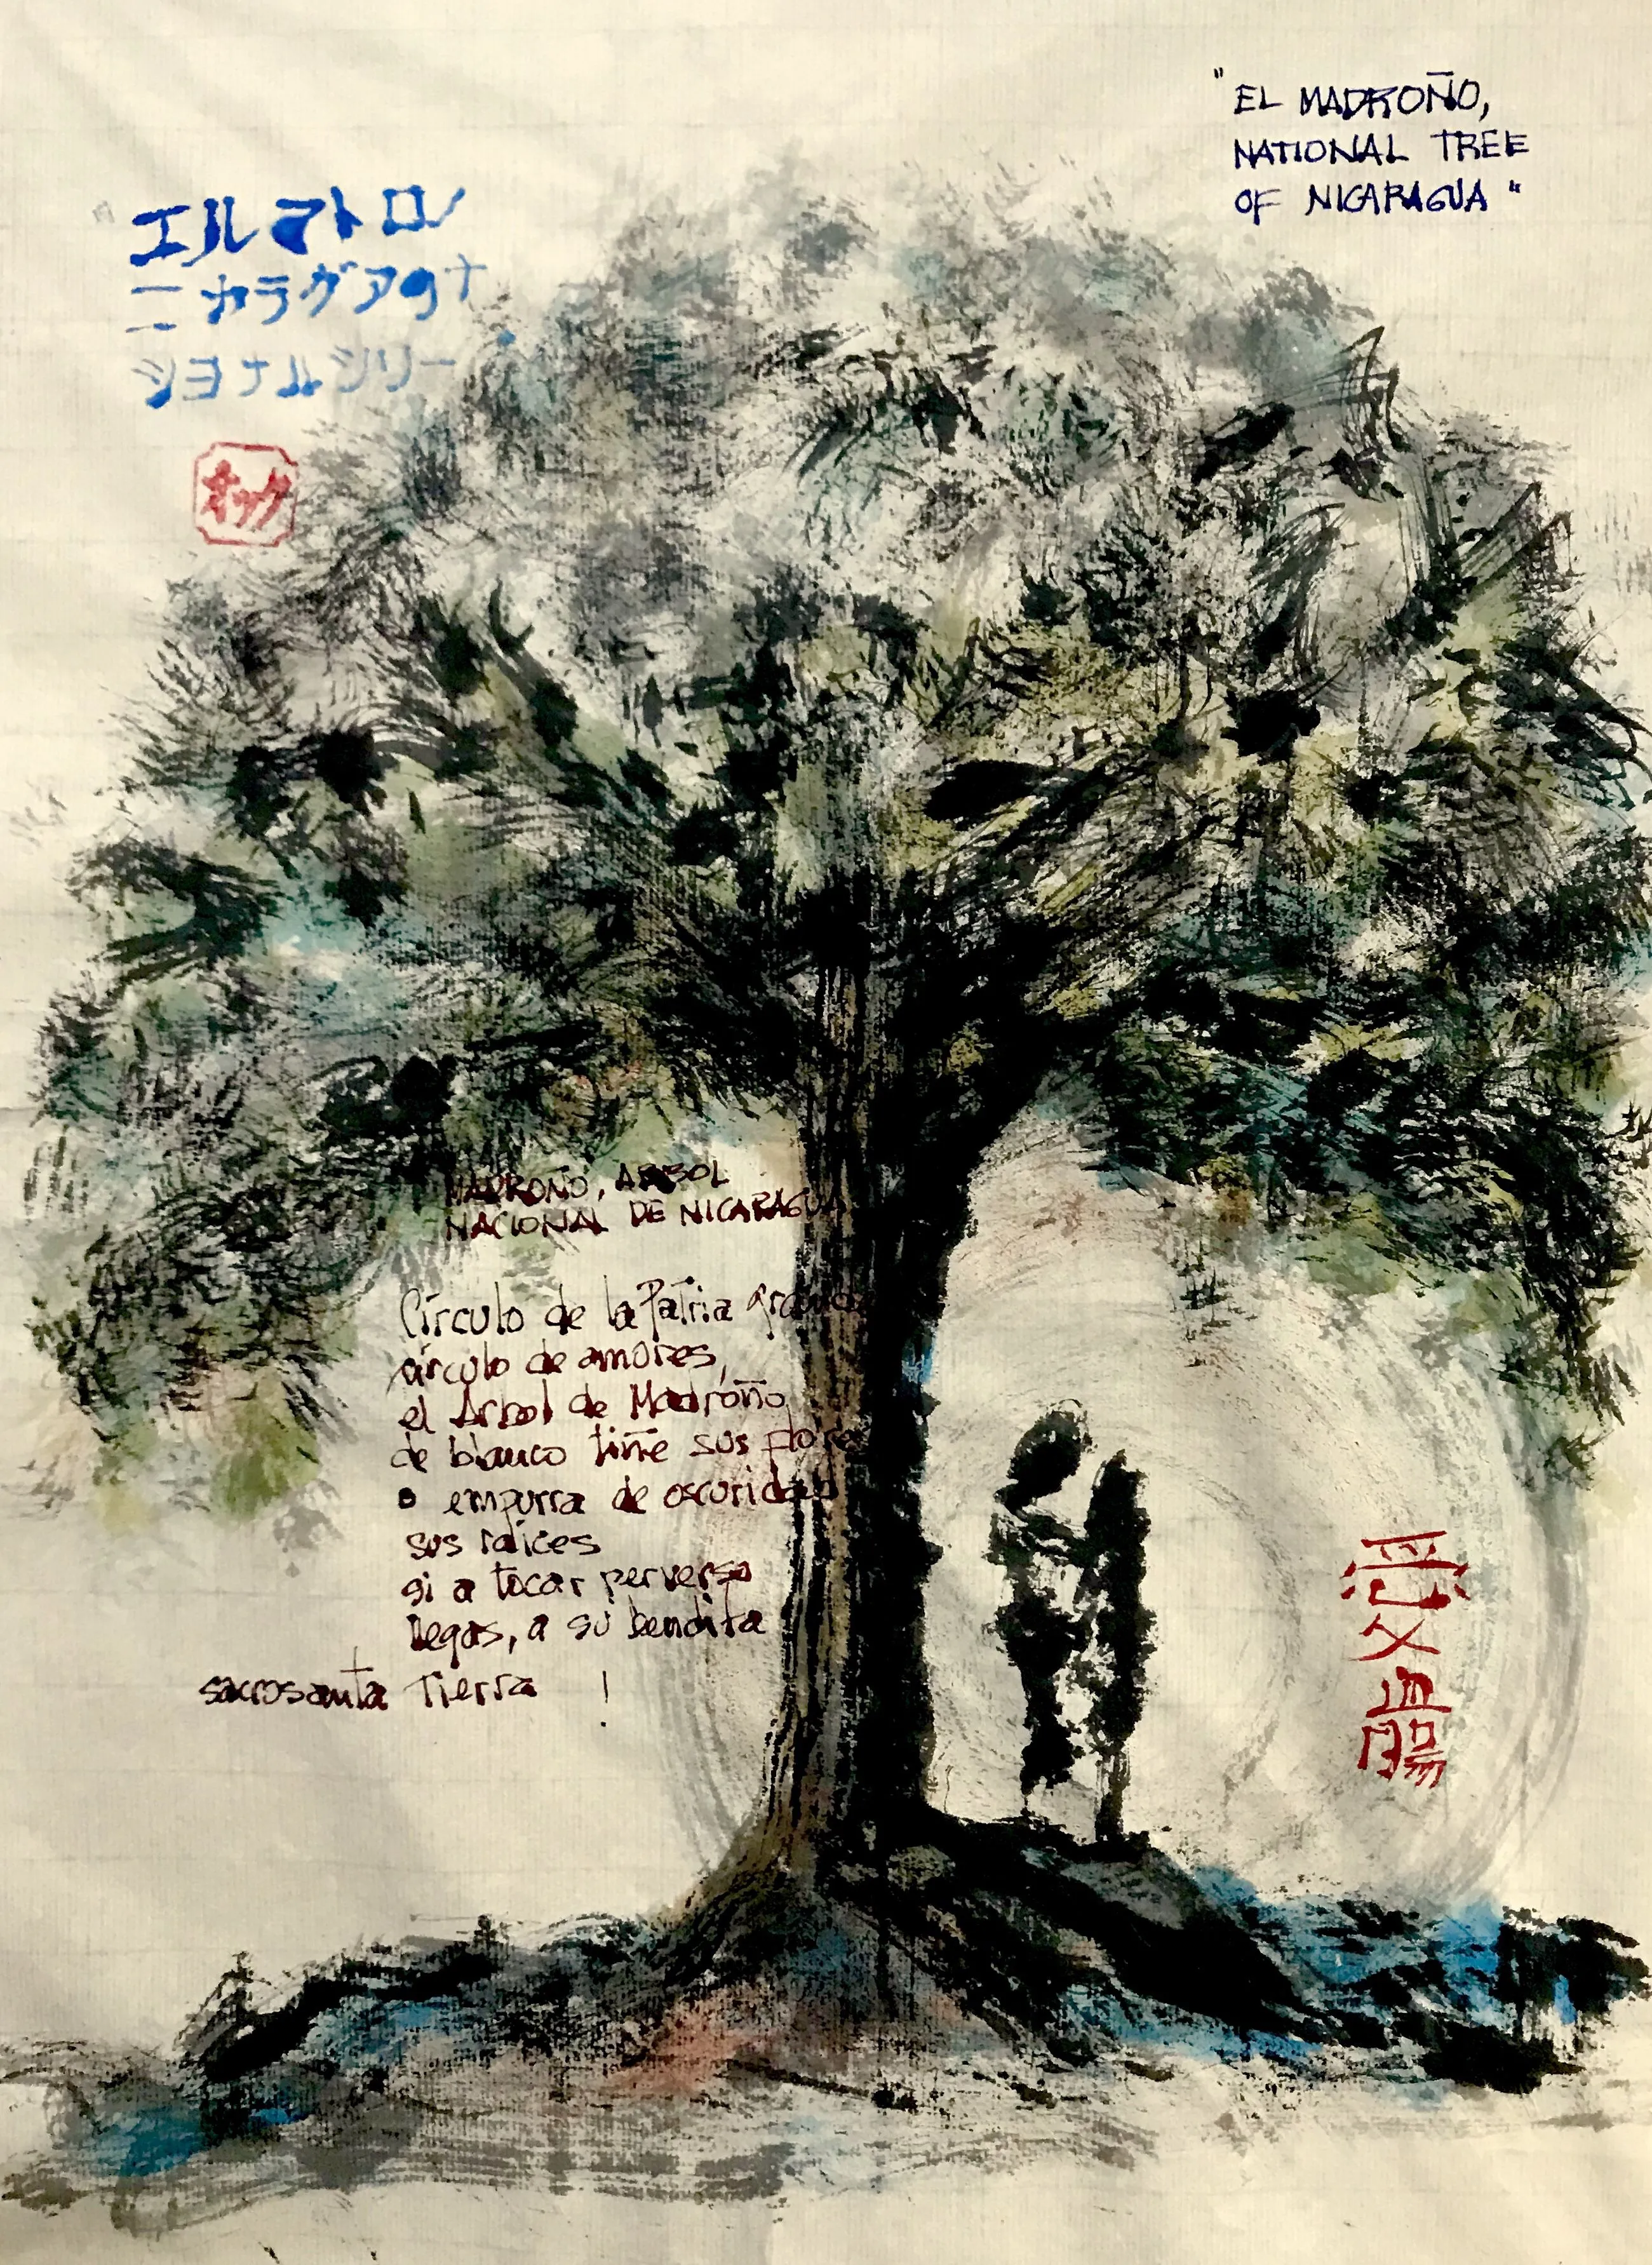 エルマトロン
ニカラグアのナ
ショナルシリー
オック
"EL MADROÑO,
NATIONAL TREE
OF NICARAGUA"
MADROÑO, ARBOL
NACIONAL DE NICARAGUA
Círculo de la Patria
círculo de amores,
el Arbol de Madroño
de blanco tiñe sus flores
o empurra de oscuridad
sus raíces
si a tocar perverso
llegas, a su bendita
sacrosanta Tierra !